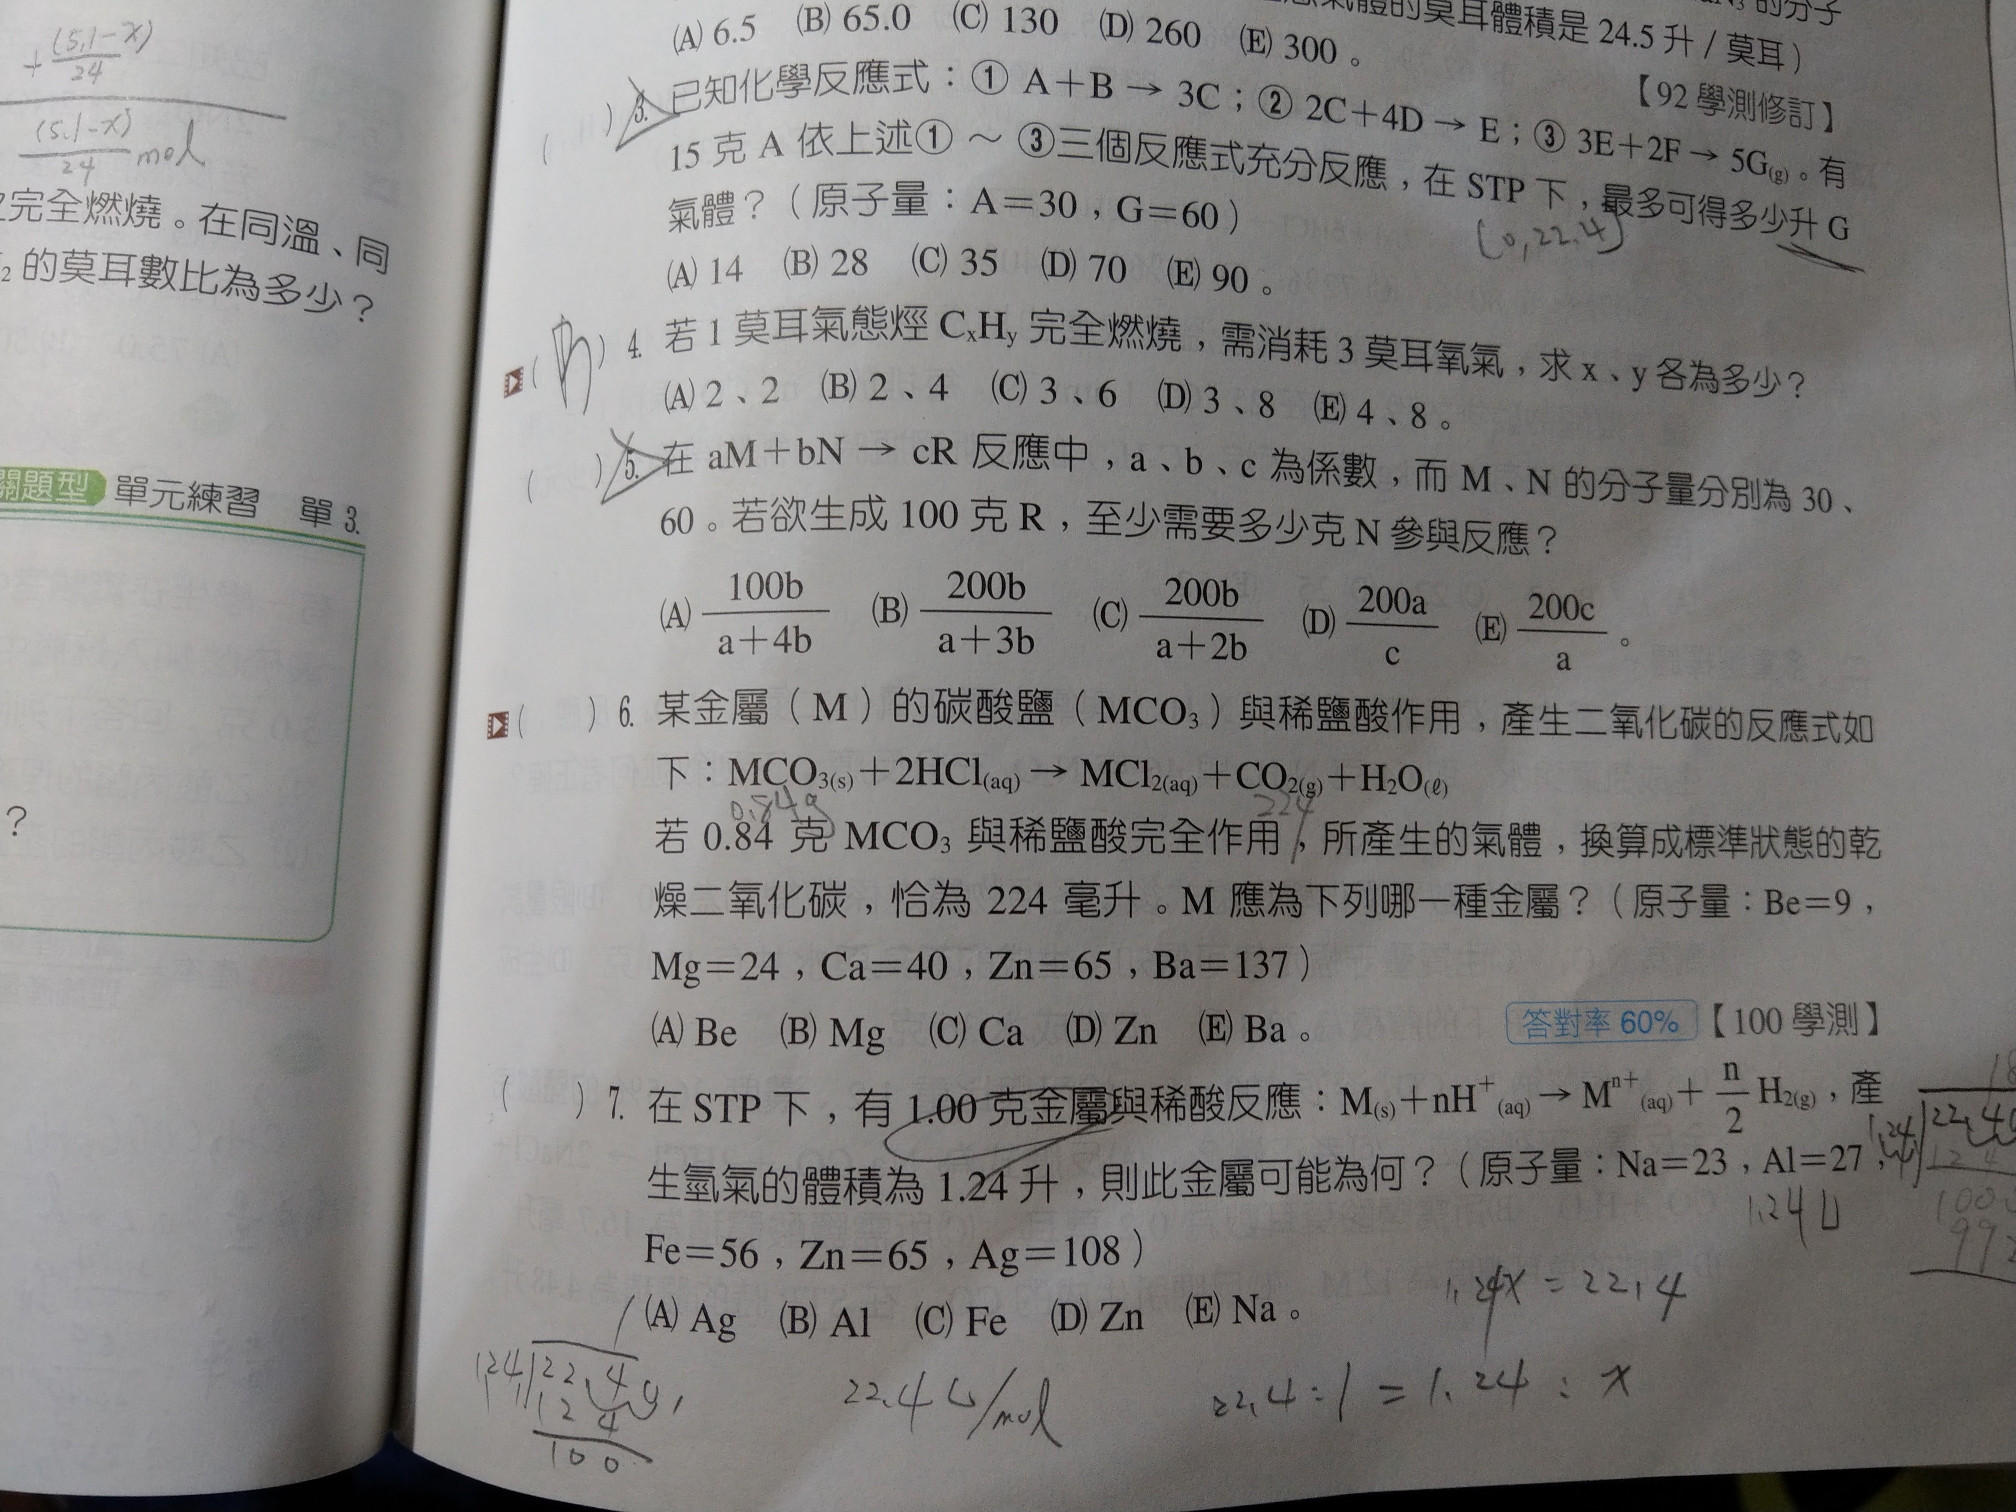 + (5.1-x)/24
(5.1-x)/24 mol
完全燃燒。在同溫、同
₂ 的莫耳數比為多少？
關題型 單元練習 單 3.
？
氣體的莫耳體積是 24.5 升 / 莫耳）
的分子
(A) 6.5 (B) 65.0 (C) 130 (D) 260 (E) 300。
【92 學測修訂】
( ) 3. 已知化學反應式：① A＋B → 3C；② 2C＋4D → E；③ 3E＋2F → 5G(g)。有
15 克 A 依上述① ～ ③三個反應式充分反應，在 STP 下，最多可得多少升 G
氣體？（原子量：A＝30，G＝60）
(0,22.4)
(A) 14 (B) 28 (C) 35 (D) 70 (E) 90。
( B ) 4. 若 1 莫耳氣態烴 CxHy 完全燃燒，需消耗 3 莫耳氧氣，求 x、y 各為多少？
(A) 2、2 (B) 2、4 (C) 3、6 (D) 3、8 (E) 4、8。
( ) 5. 在 aM＋bN → cR 反應中，a、b、c 為係數，而 M、N 的分子量分別為 30、
60。若欲生成 100 克 R，至少需要多少克 N 參與反應？
(A) 100b/(a＋4b) (B) 200b/(a＋3b) (C) 200b/(a＋2b) (D) 200a/c (E) 200c/a。
( ) 6. 某金屬（M）的碳酸鹽（MCO₃）與稀鹽酸作用，產生二氧化碳的反應式如
下：MCO₃(s)＋2HCl(aq) → MCl₂(aq)＋CO₂(g)＋H₂O(ℓ)
0.84g 224
若 0.84 克 MCO₃ 與稀鹽酸完全作用，所產生的氣體，換算成標準狀態的乾
燥二氧化碳，恰為 224 毫升。M 應為下列哪一種金屬？（原子量：Be＝9，
Mg＝24，Ca＝40，Zn＝65，Ba＝137）
(A) Be (B) Mg (C) Ca (D) Zn (E) Ba。 答對率 60% 【100 學測】
( ) 7. 在 STP 下，有 1.00 克金屬與稀酸反應：M(s)＋nH⁺(aq) → Mⁿ⁺(aq)＋n/2 H₂(g)，產
生氫氣的體積為 1.24 升，則此金屬可能為何？（原子量：Na＝23，Al＝27，
1.24 L
Fe＝56，Zn＝65，Ag＝108）
1.24x = 22.4
(A) Ag (B) Al (C) Fe (D) Zn (E) Na。
22.4 L/mol
22.4 : 1 = 1.24 : x
1.24 22.4
124
100
18
1.24 22.40
124
100
992